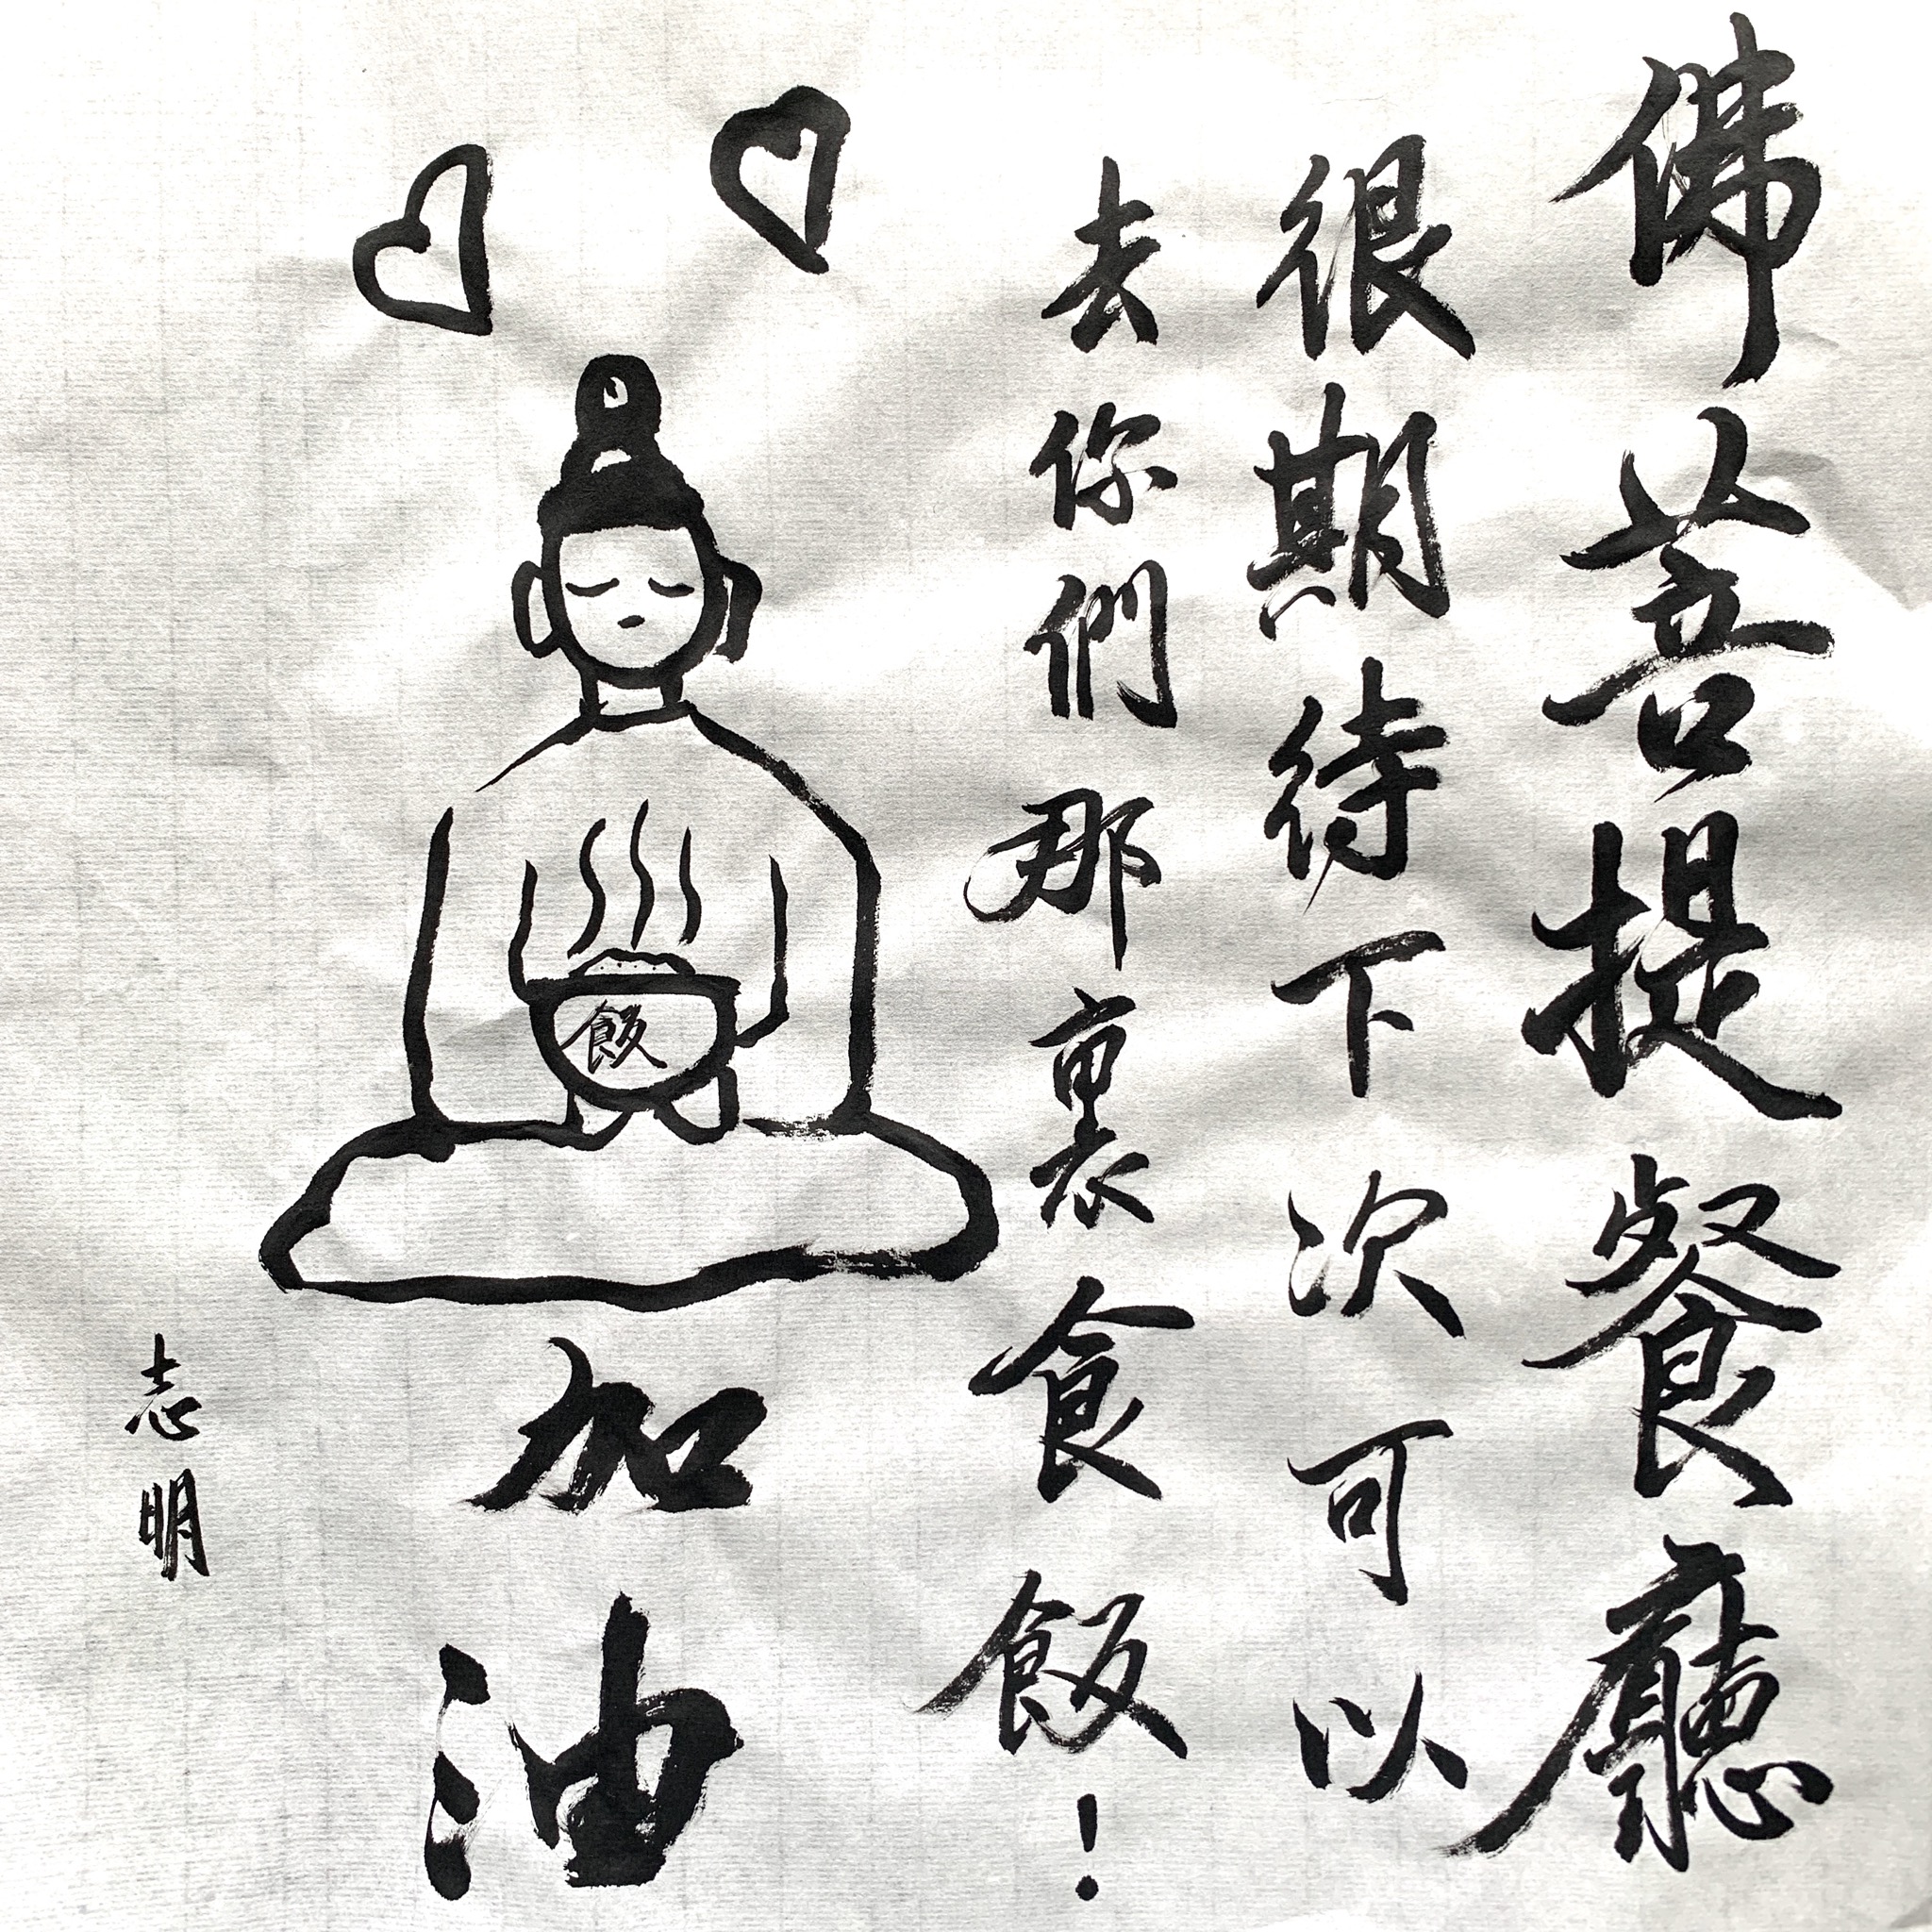 佛菩提餐廳
很期待下次可以
去你們那裏食飯!
飯
加油
志明